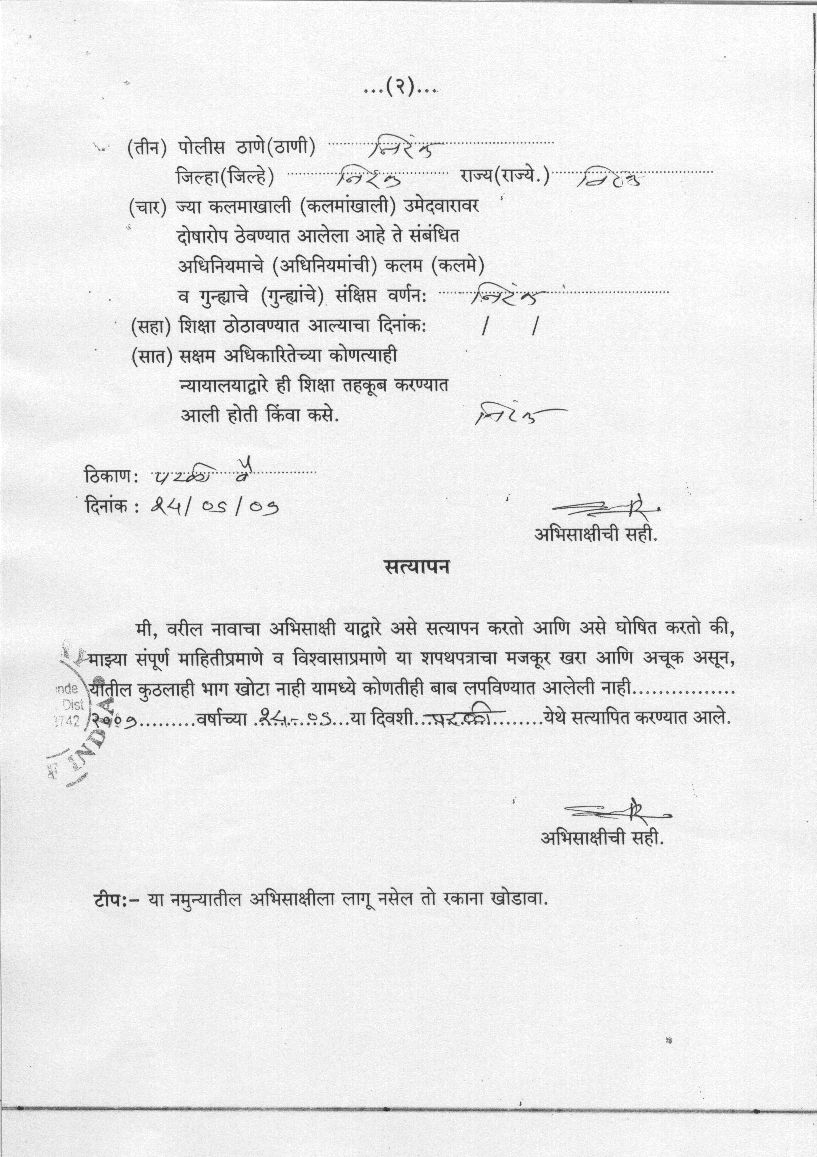 ...(२)...
(तीन) पोलीस ठाणे(ठाणी) निरंक
जिल्हा(जिल्हे) निरंक राज्य(राज्ये.) निरंक
(चार) ज्या कलमाखाली (कलमांखाली) उमेदवारावर
दोषारोप ठेवण्यात आलेला आहे ते संबंधित
अधिनियमाचे (अधिनियमांची) कलम (कलमे)
व गुन्ह्याचे (गुन्ह्यांचे) संक्षिप्त वर्णन: निरंक
(सहा) शिक्षा ठोठावण्यात आल्याचा दिनांक: / /
(सात) सक्षम अधिकारितेच्या कोणत्याही
न्यायालयाद्वारे ही शिक्षा तहकूब करण्यात
आली होती किंवा कसे. निरंक
ठिकाण: परळी वै
दिनांक :
अभिसाक्षीची सही.
सत्यापन
मी, वरील नावाचा अभिसाक्षी याद्वारे असे सत्यापन करतो आणि असे घोषित करतो की,
माझ्या संपूर्ण माहितीप्रमाणे व विश्वासाप्रमाणे या शपथपत्राचा मजकूर खरा आणि अचूक असून,
यातील कुठलाही भाग खोटा नाही यामध्ये कोणतीही बाब लपविण्यात आलेली नाही................
२००९.........वर्षाच्या ...या दिवशी...परळी........येथे सत्यापित करण्यात आले.
nde
Dist
742
INDIA
अभिसाक्षीची सही.
टीप:- या नमुन्यातील अभिसाक्षीला लागू नसेल तो रकाना खोडावा.